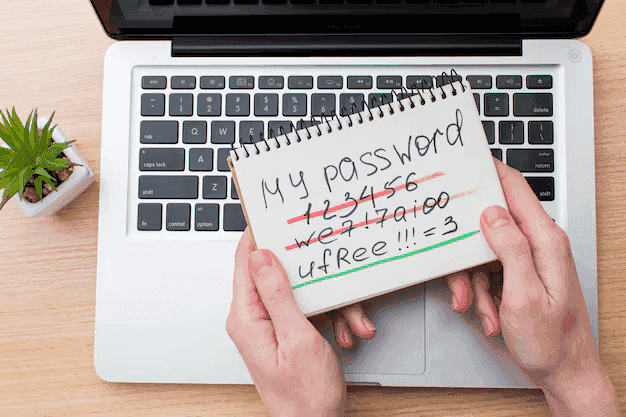 My password
123456
we7!7aioo
ufRee!!!=3
tab
caps lock
shift
fn
control
option
delete
return
shift
Q
W
A
Z